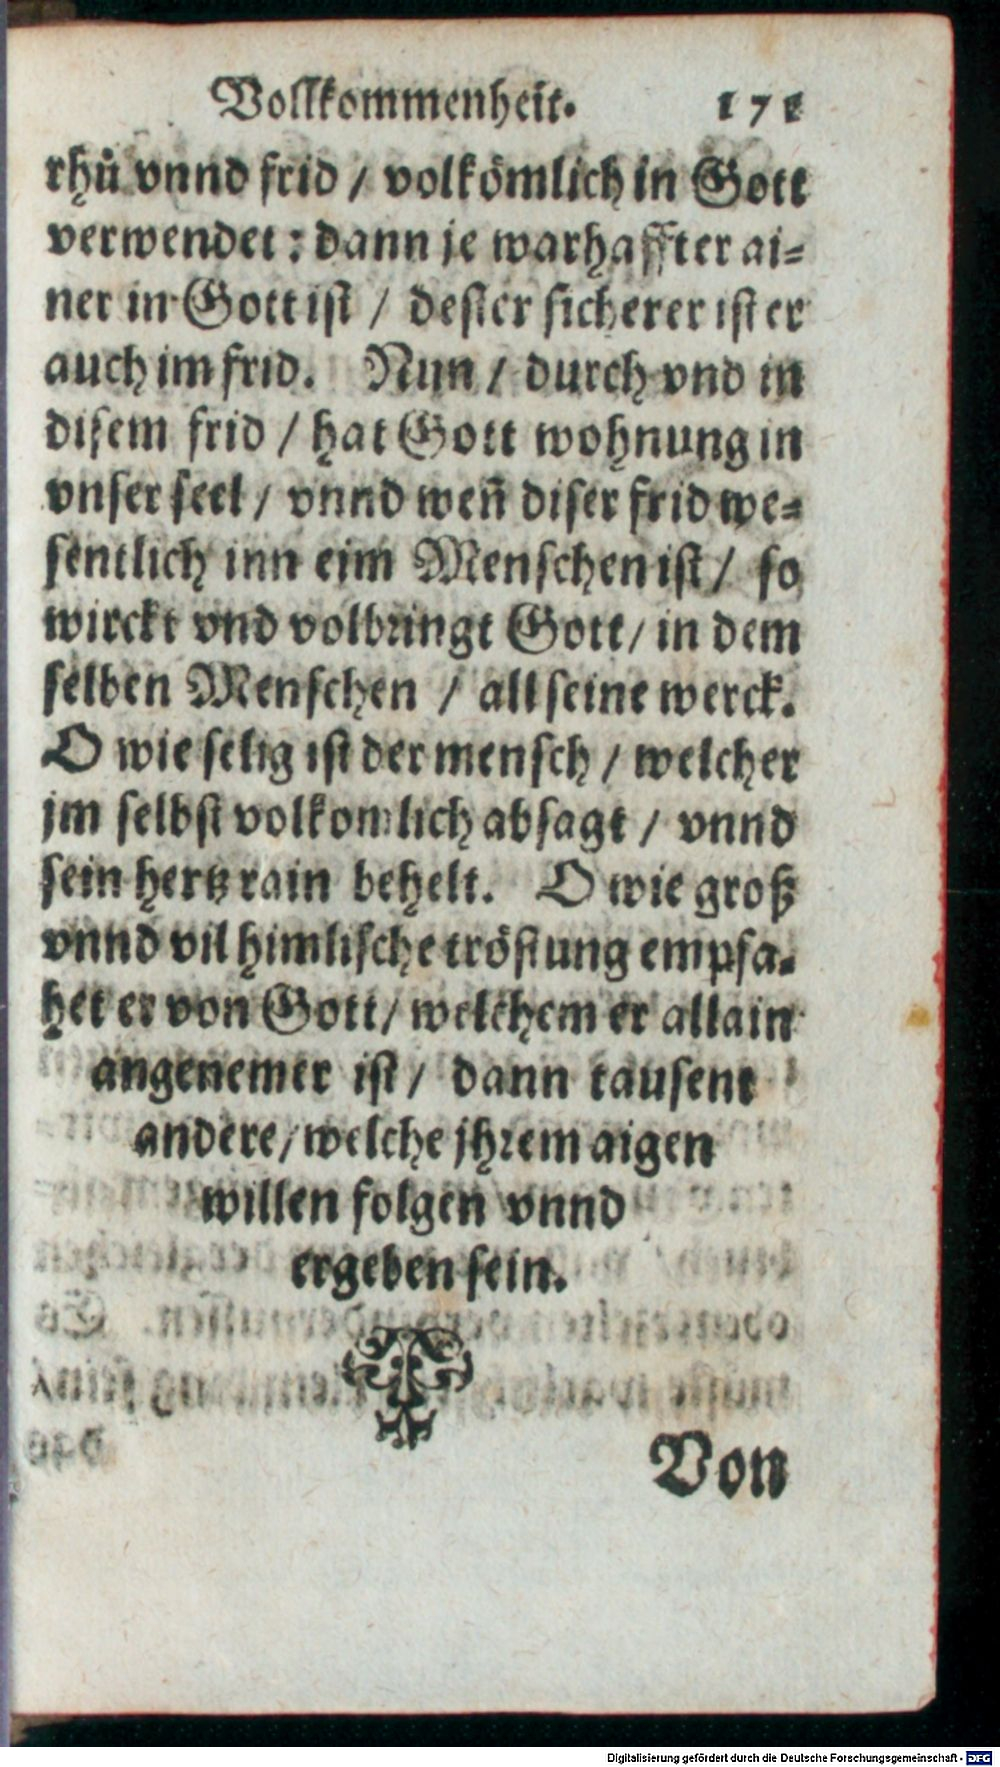 Vollkommenheit. 171
rhů vnnd frid / volkömlich in Gott
verwendet : dann je warhaffter ai-
ner in Gott ist / dester sicherer ist er
auch im frid. Nun / durch vnd in
disem frid / hat Gott wohnung in
vnser seel / vnnd weñ diser frid we-
sentlich inn eim Menschen ist / so
wirckt vnd volbringt Gott / in dem
selben Menschen / all seine werck.
O wie selig ist der mensch / welcher
jm selbst volkomlich absagt / vnnd
sein hertz rain behelt. O wie groß
vnnd vil himlische tröstung empfa-
het er von Gott / welchem er allain
angenemer ist / dann tausent
andere / welche jhrem aigen
willen folgen vnnd
ergeben sein.
Von
Digitalisierung gefördert durch die Deutsche Forschungsgemeinschaft - DFG